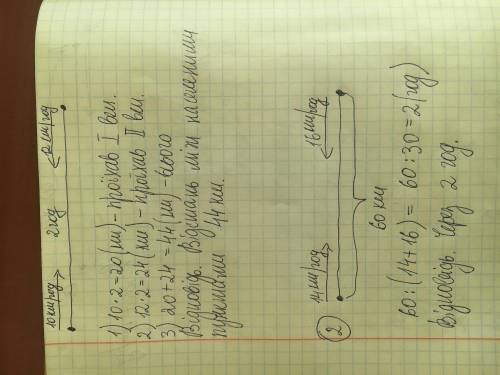 10 км/год 2 год 12 км/год
1) 10·2=20(км)-проїхав I вел.
2) 12·2=24(км)-проїхав II вел.
3) 20+24=44(км)-всього
Відповідь. Відстань між населеними
пунктами 44 км.
2
14 км/год 16 км/год
60 км
60:(14+16)= 60:30=2(год)
Відповідь. Через 2 год.